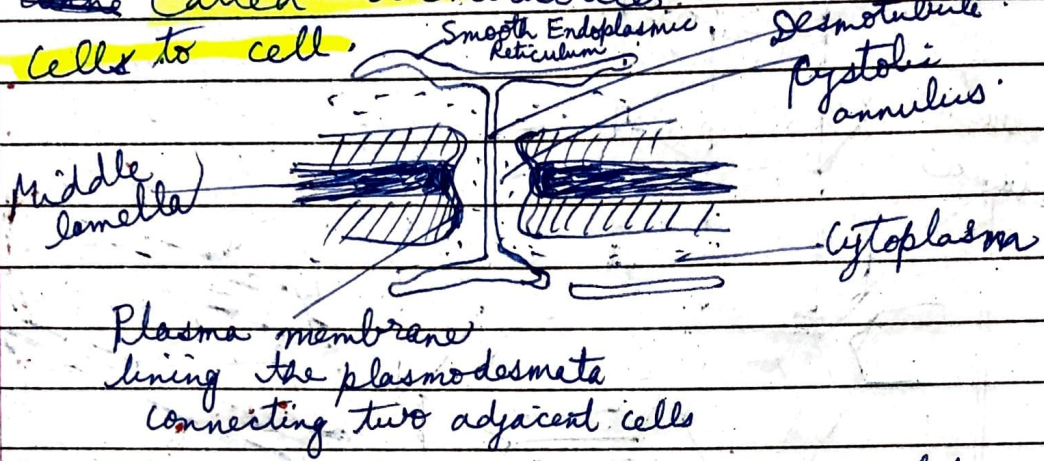 called
cells to cell.
Smooth Endoplasmic
Reticulum
Desmotubule
Cystolic
annulus
Middle
lamella
Cytoplasma
Plasma membrane
lining the plasmodesmata
connecting two adjacent cells